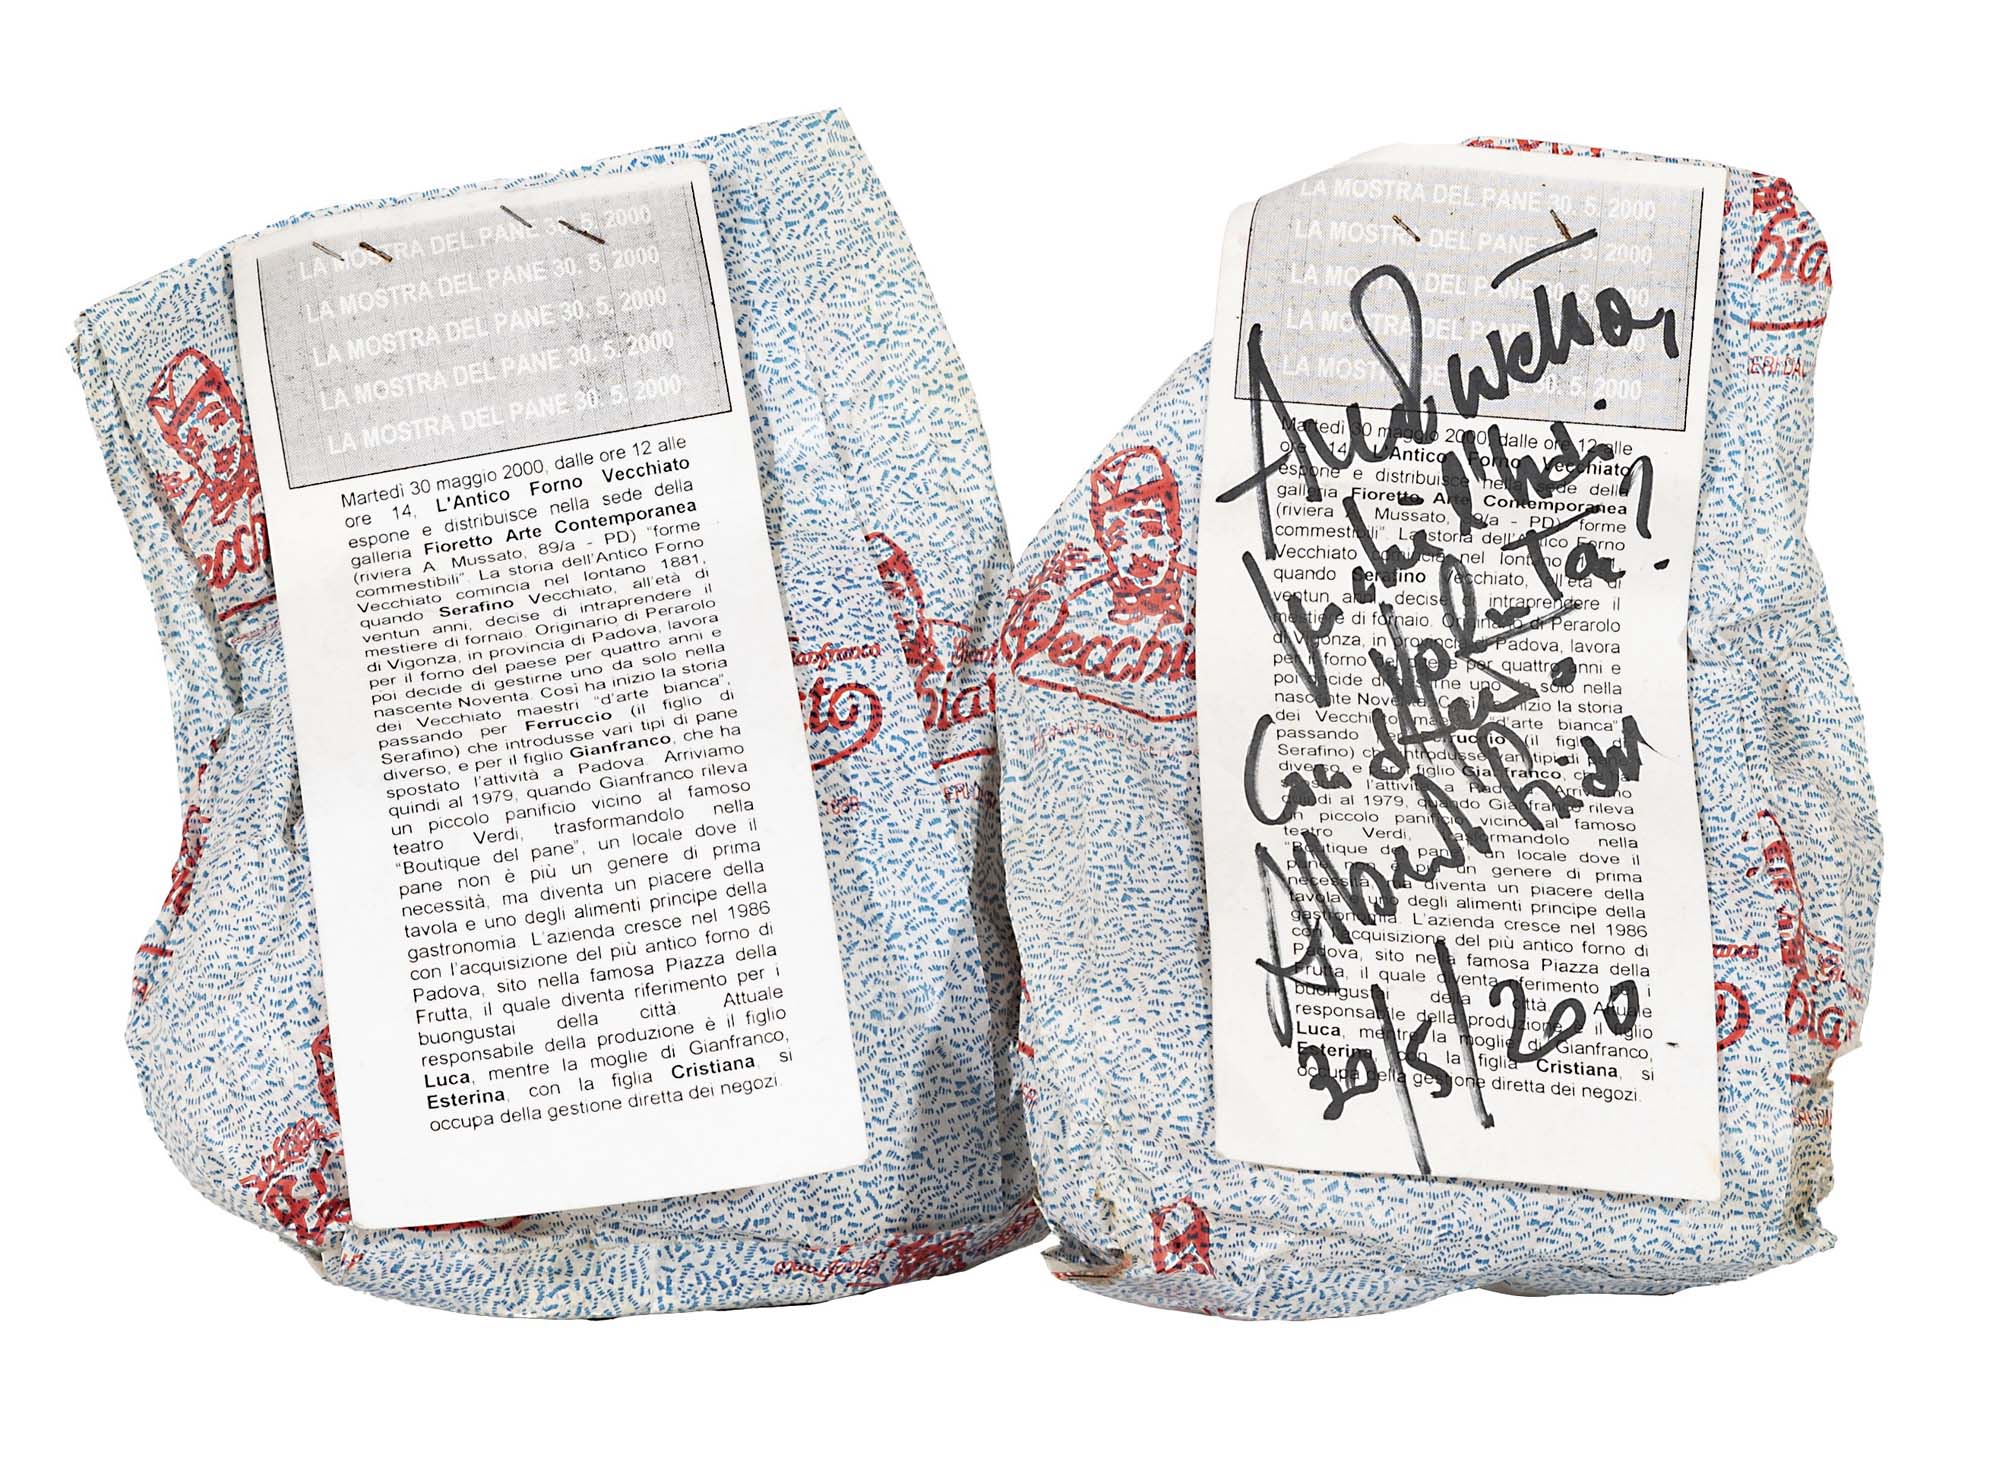 LA MOSTRA DEL PANE 30. 5. 2000
LA MOSTRA DEL PANE 30. 5. 2000
LA MOSTRA DEL PANE 30. 5. 2000
LA MOSTRA DEL PANE 30. 5. 2000
LA MOSTRA DEL PANE 30. 5. 2000
Martedì 30 maggio 2000, dalle ore 12 alle
ore 14, L'Antico Forno Vecchiato
espone e distribuisce nella sede della
galleria Fioretto Arte Contemporanea
(riviera A. Mussato, 89/a - PD) "forme
commestibili". La storia dell'Antico Forno
Vecchiato comincia nel lontano 1881,
quando Serafino Vecchiato, all'età di
ventun anni, decise di intraprendere il
mestiere di fornaio. Originario di Perarolo
di Vigonza, in provincia di Padova, lavora
per il forno del paese per quattro anni e
poi decide di gestirne uno da solo nella
nascente Noventa. Così ha inizio la storia
dei Vecchiato maestri "d'arte bianca",
passando per Ferruccio (il figlio di
Serafino) che introdusse vari tipi di pane
diverso, e per il figlio Gianfranco, che ha
spostato l'attività a Padova. Arriviamo
quindi al 1979, quando Gianfranco rileva
un piccolo panificio vicino al famoso
teatro Verdi, trasformandolo nella
"Boutique del pane", un locale dove il
pane non è più un genere di prima
necessità, ma diventa un piacere della
tavola e uno degli alimenti principe della
gastronomia. L'azienda cresce nel 1986
con l'acquisizione del più antico forno di
Padova, sito nella famosa Piazza della
Frutta, il quale diventa riferimento per i
buongustai della città. Attuale
responsabile della produzione è il figlio
Luca, mentre la moglie di Gianfranco,
Esterina, con la figlia Cristiana, si
occupa della gestione diretta dei negozi.
Gianfranco
LA MOSTRA DEL PANE 30. 5. 2000
LA MOSTRA DEL PANE 30. 5. 2000
LA MOSTRA DEL PANE 30. 5. 2000
LA MOSTRA DEL PANE 30. 5. 2000
LA MOSTRA DEL PANE 30. 5. 2000
Martedì 30 maggio 2000, dalle ore 12 alle
ore 14, L'Antico Forno Vecchiato
espone e distribuisce nella sede della
galleria Fioretto Arte Contemporanea
(riviera A. Mussato, 89/a - PD) "forme
commestibili". La storia dell'Antico Forno
Vecchiato comincia nel lontano 1881,
quando Serafino Vecchiato, all'età di
ventun anni, decise di intraprendere il
mestiere di fornaio. Originario di Perarolo
di Vigonza, in provincia di Padova, lavora
per il forno del paese per quattro anni e
poi decide di gestirne uno da solo nella
nascente Noventa. Così ha inizio la storia
dei Vecchiato maestri "d'arte bianca",
passando per Ferruccio (il figlio di
Serafino) che introdusse vari tipi di pane
diverso, e per il figlio Gianfranco, che ha
spostato l'attività a Padova. Arriviamo
quindi al 1979, quando Gianfranco rileva
un piccolo panificio vicino al famoso
teatro Verdi, trasformandolo nella
"Boutique del pane", un locale dove il
pane non è più un genere di prima
necessità, ma diventa un piacere della
tavola e uno degli alimenti principe della
gastronomia. L'azienda cresce nel 1986
con l'acquisizione del più antico forno di
Padova, sito nella famosa Piazza della
Frutta, il quale diventa riferimento per i
buongustai della città. Attuale
responsabile della produzione è il figlio
Luca, mentre la moglie di Gianfranco,
Esterina, con la figlia Cristiana, si
occupa della gestione diretta dei negozi.
30/5/200